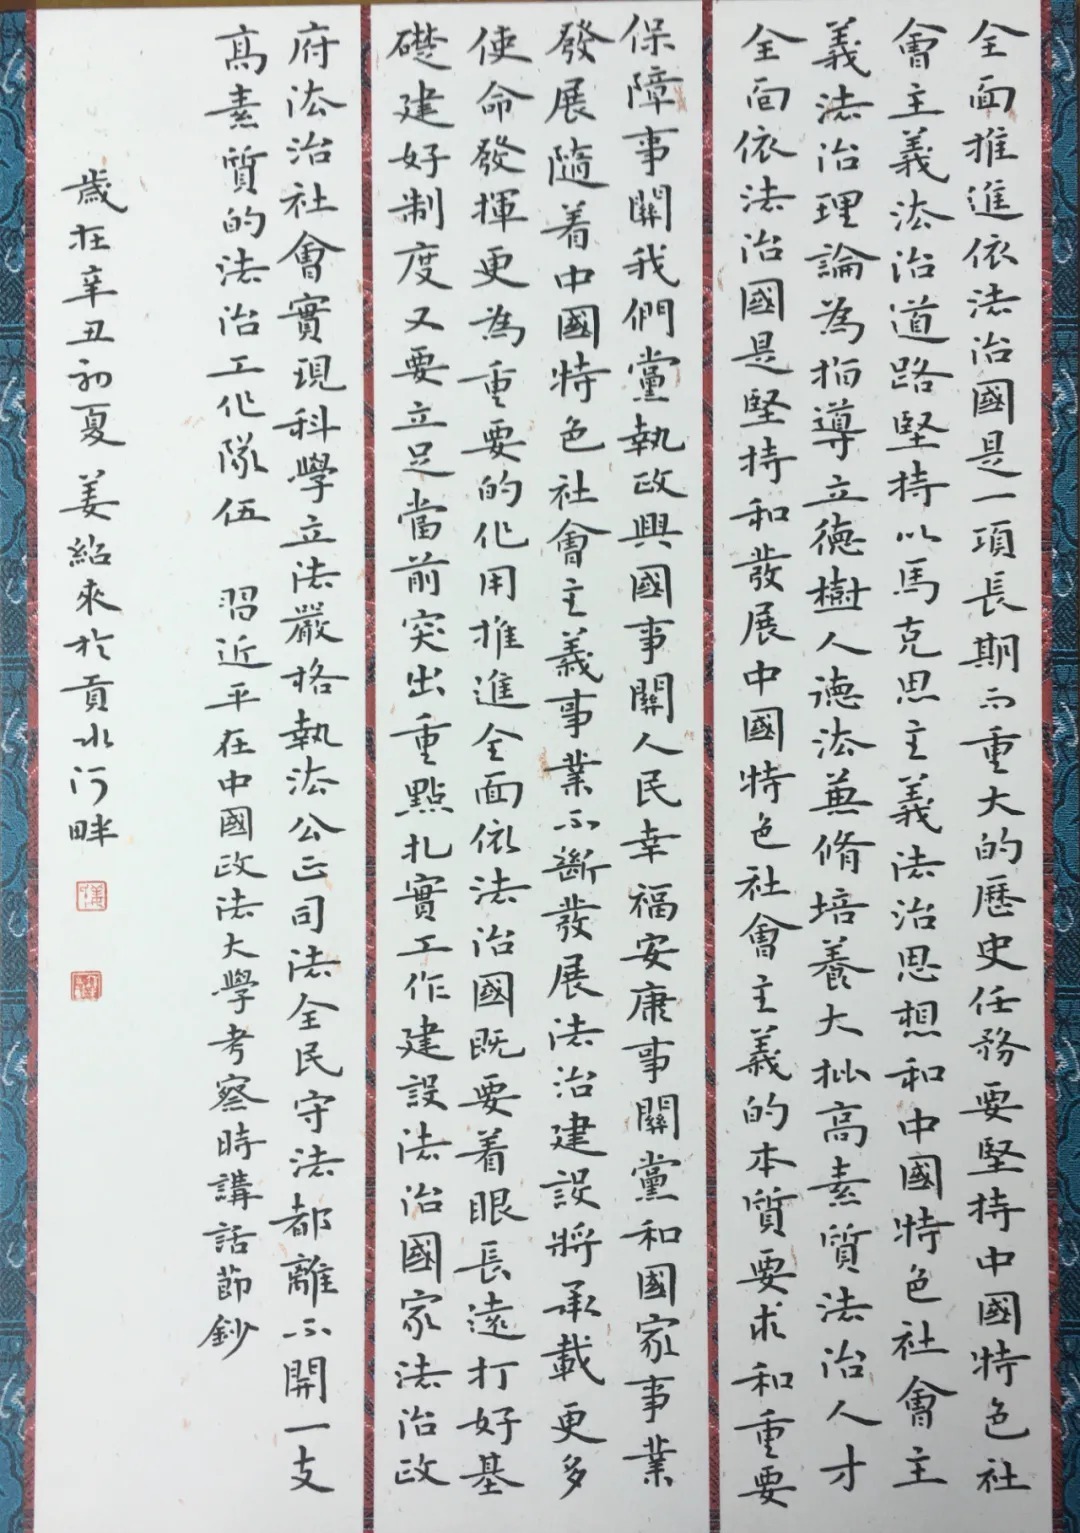 全面推進依法治國是一項長期而重大的歷史任務要堅持中國特色社
會主義法治道路堅持以馬克思主義法治思想和中國特色社會主
義法治理論為指導立德樹人德法兼脩培養大批高素質法治人才
全面依法治國是堅持和發展中國特色社會主義的本質要求和重要
保障事關我們黨執政興國事關人民幸福安康事關黨和國家事業
發展隨着中國特色社會主義事業不斷發展法治建設將承載更多
使命發揮更為重要的作用推進全面依法治國既要着眼長遠打好基
礎建好制度又要立足當前突出重點扎實工作建設法治國家法治政
府法治社會實現科學立法嚴格執法公正司法全民守法都離不開一支
高素質的法治工作隊伍 習近平在中國政法大學考察時講話節鈔
歲在辛丑初夏姜紹來於貢水河畔